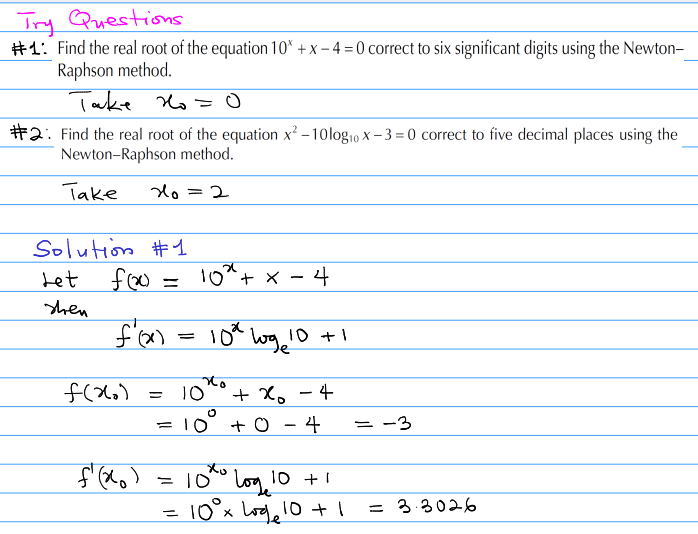 Try Questions
#1: Find the real root of the equation 10ˣ + x – 4 = 0 correct to six significant digits using the Newton–
Raphson method.
Take x₀ = 0
#2: Find the real root of the equation x² – 10 log₁₀ x – 3 = 0 correct to five decimal places using the
Newton–Raphson method.
Take x₀ = 2
Solution #1
Let f(x) = 10ˣ + x – 4
then
f'(x) = 10ˣ logₑ10 + 1
f(x₀) = 10^x₀ + x₀ – 4
= 10⁰ + 0 – 4 = –3
f'(x₀) = 10^x₀ logₑ10 + 1
= 10⁰ × logₑ10 + 1 = 3.3026